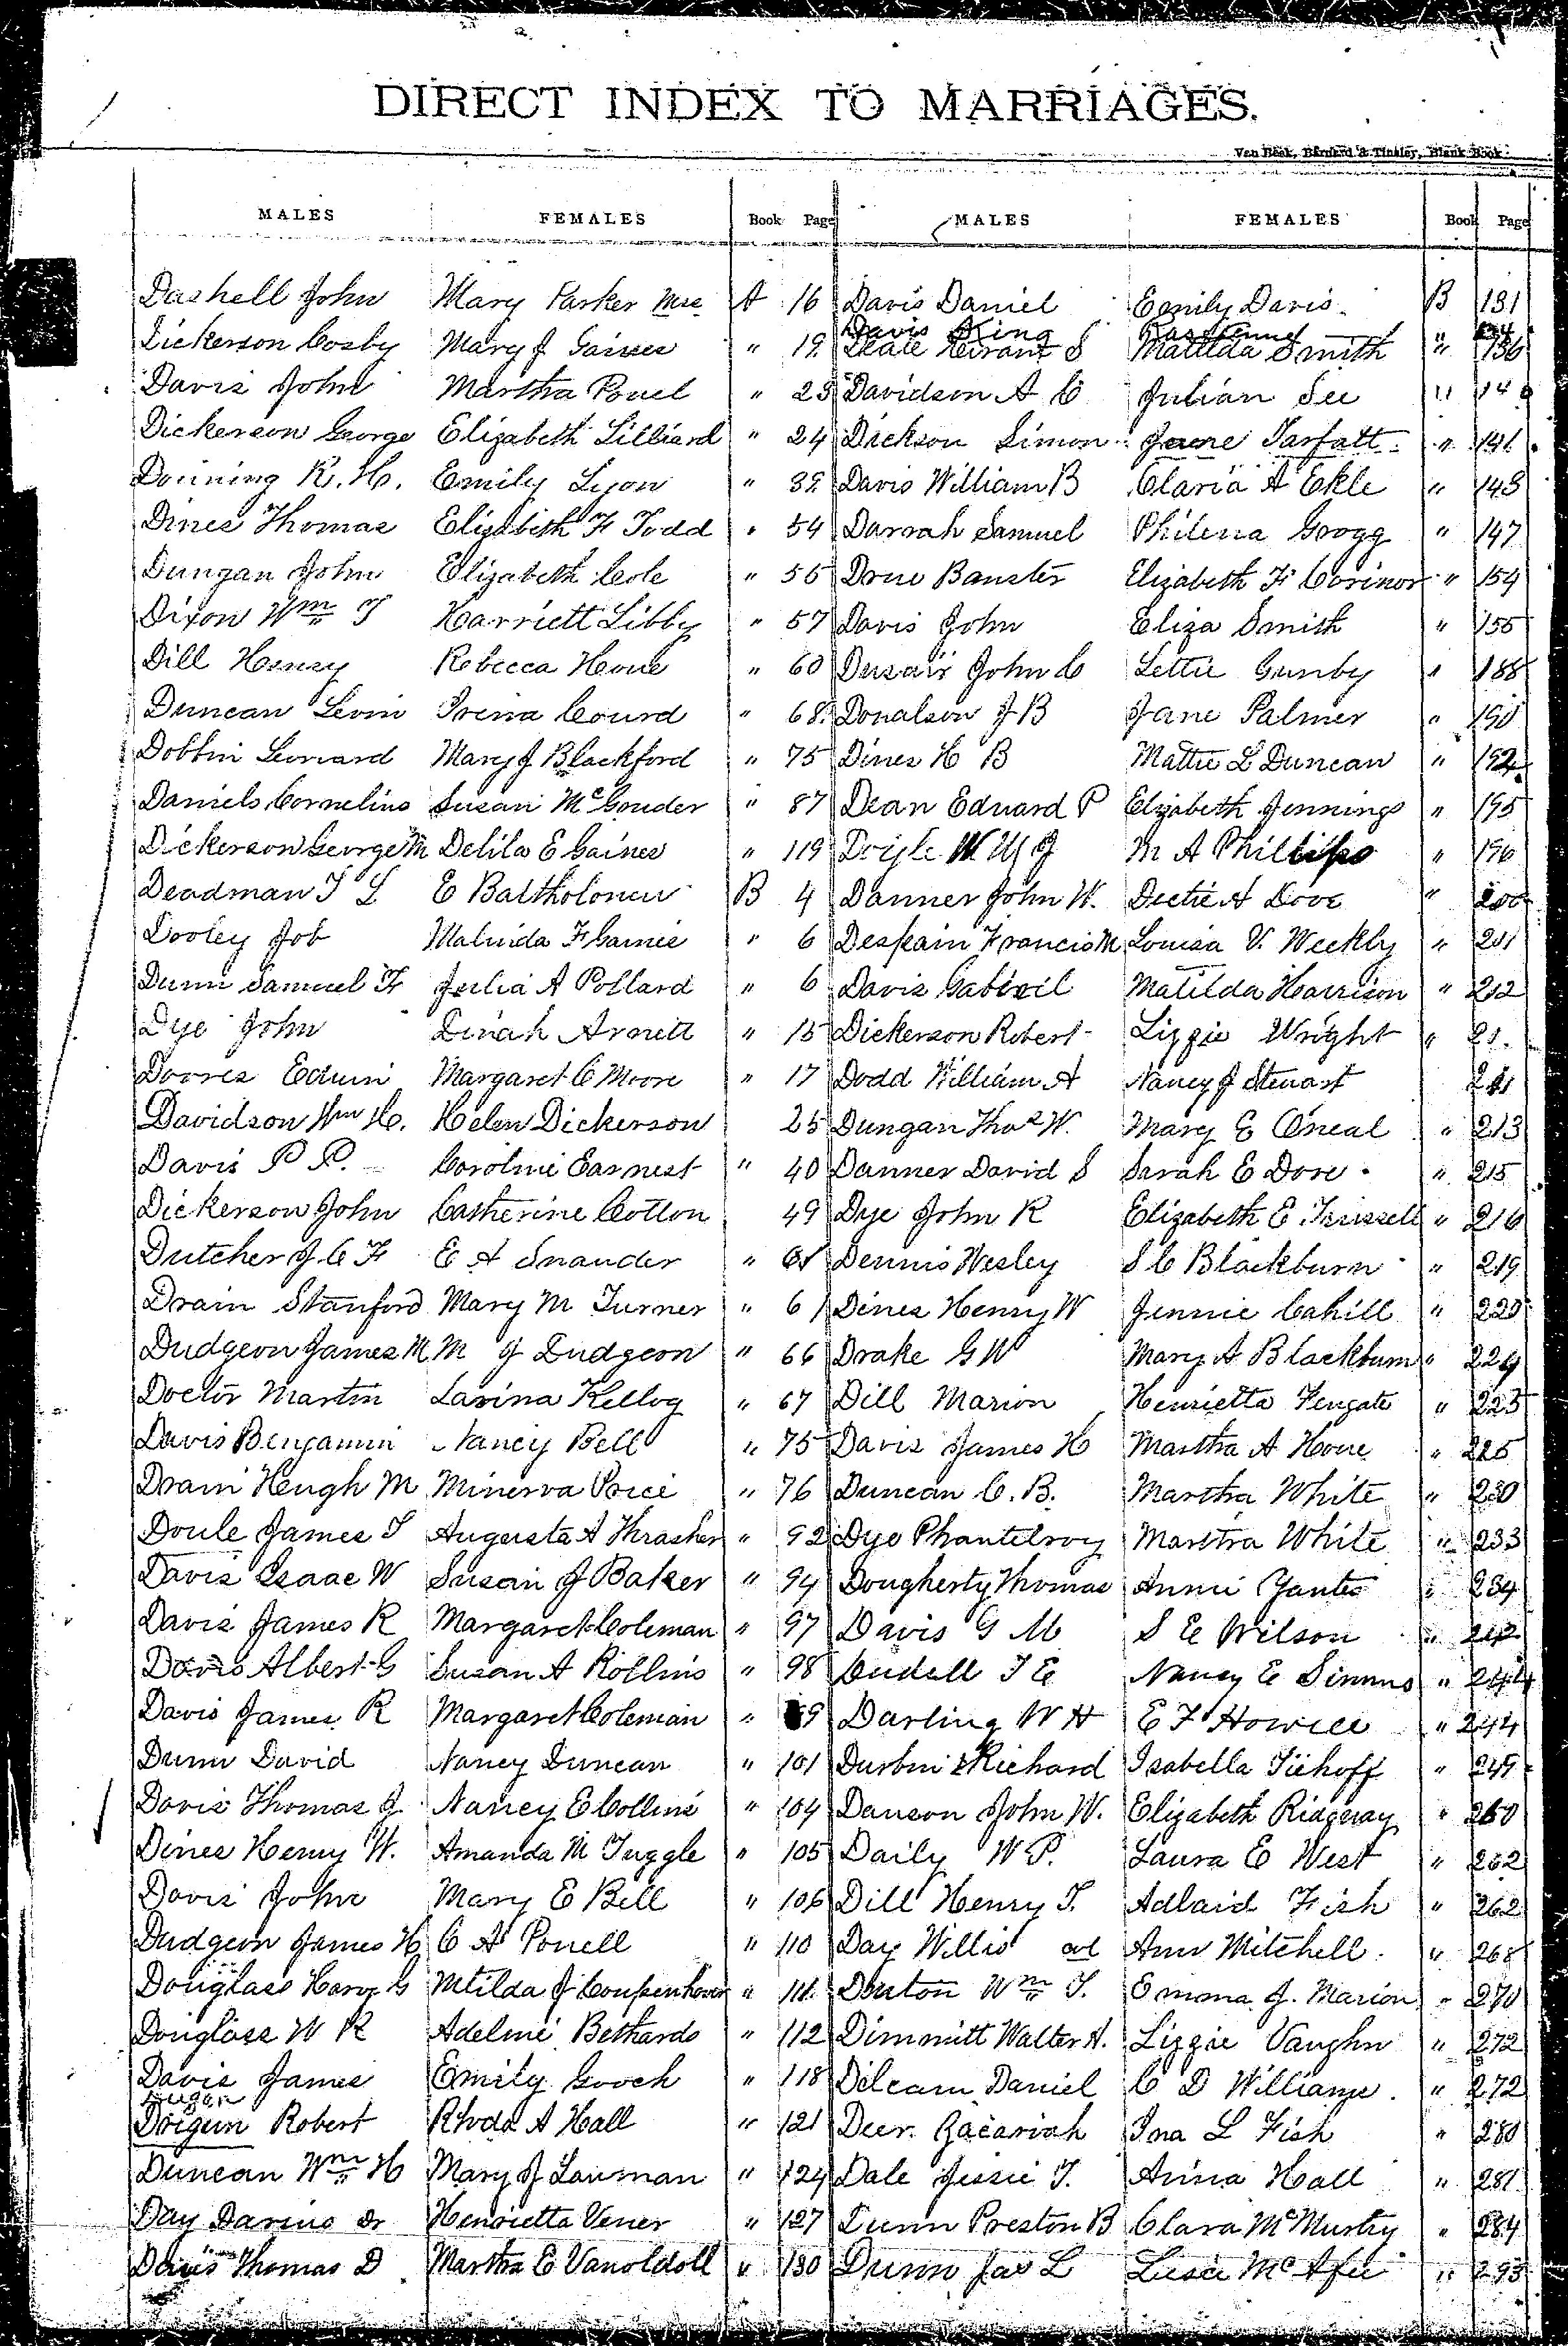 DIRECT INDEX TO MARRIAGES.
Van Beek, Barnard & Tinsley, Blank Book
MALES FEMALES Book Page MALES FEMALES Book Page
Dashell John Mary Parker Mrs A 16 Davis Daniel Emily Davis B 131
Davis King
Dickerson Cosby Mary J Gaines " 19 Hiram S Matilda Smith " 136
Davis John Martha Powel " 23 Davidson A C Julian See "
Dickerson George Elizabeth Lilliard " 24 Dickson Simon Jane Tarfatt " 141
Donning R. H. Emily Lyon " 39 Davis William B Claria A Ekle " 143
Dines Thomas Elizabeth F Todd " 54 Darrah Samuel Philena Grogg " 147
Dungan John Elizabeth Cole " 55 Drue Banster Elizabeth F Corinor " 154
Dixon Wm T Harriett Libby " 57 Davis John Eliza Smith " 155
Dill Henry Rebecca Howe " 60 Dusair John C Lettie Gunby " 188
Duncan Levin Irena Courd " 68 Donalson J B Jane Palmer " 190
Dobbin Leonard Mary J Blackford " 75 Dines H B Mattie L Duncan " 192
Daniels Cornelius Susan McGouder " 87 Dean Edward P Elizabeth Jennings " 195
Dickerson George M Delila E Gaines " 119 Doyle W W J M A Phillips " 196
Deadman T L E Bartholomew B 4 Danner John W. Dectie A Dove " 200
Dooley Job Malinda F Gaines " 6 Despain Francis M Louisa V. Weekly " 201
Dunn Samuel F Julia A Pollard " 6 Davis Gabriel Matilda Harrison " 212
Dye John Dinah Arnett " 15 Dickerson Robert Lizzie Wright "
Doores Edwin Margaret C Moore " 17 Dodd William A Nancy J Stewart 211
Davidson Wm H. Helen Dickerson 25 Dungan Thos W. Mary E Oneal " 213
Davis P P. Caroline Earnest " 40 Danner David S Sarah E Dove " 215
Dickerson John Catherine Cotton 49 Dye John R Elizabeth E Trussell " 216
Dutcher J C F E A Snauder " 61 Dennis Wesley S C Blackburn " 219
Drain Stanford Mary M Turner " 61 Dines Henry W Jennie Cahill " 220
Dudgeon James M M J Dudgeon " 66 Drake G W Mary A Blackburn " 224
Doctor Martin Lavina Kellog " 67 Dill Marion Henrietta Fengate " 225
Davis Benjamin Nancy Bell " 75 Davis James H Martha A Howe " 225
Drain Heugh M Minerva Price " 76 Duncan C. B. Martha White " 230
Doule James T Augusta A Thrasher " 92 Dye Phantelroy Martha White " 233
Davis Isaac W Susan J Baker " 94 Dougherty Thomas Annie Yantis " 234
Davis James R Margaret Coleman " 97 Davis G M S E Wilson " 242
Davis Albert G Susan A Rollins " 98 Dudell T E Nancy E Simms " 244
Davis James R Margaret Coleman " 99 Darling W H E F Howell " 244
Dunn David Nancy Duncan " 101 Durbin Richard Isabella Tiehoff " 249
Davis Thomas J Nancy E Collins " 104 Dawson John W. Elizabeth Ridgway " 260
Dines Henry W. Amanda M Tuggle " 105 Daily W P. Laura E West " 262
Davis John Mary E Bell " 106 Dill Henry T. Adlaid Fish " 262
Dudgeon James H C A Powell " 110 Day Willis col Ann Mitchell " 268
Douglass Harvy G Mtilda J Coupenhover " 111 Denton Wm T. Emma J. Marion " 270
Douglass W R Adeline Bethards " 112 Dimmitt Walter A. Lizzie Vaughn " 272
Davis James Emily Gooch " 118 Dileam Daniel C D Williams " 272
Dugan
Doigun Robert Rhoda A Hall " 121 Deer Zacariah Ina L Fish " 280
Duncan Wm H Mary J Lawman " 124 Dale Jessie T. Anna Hall " 281
Day Darius Dr Henrietta Vener " 127 Dunn Preston B Clara McMurtry " 284
Davis Thomas D Martha E Vanoldoll " 130 Dunn Jas L Lucie McAfee " 293